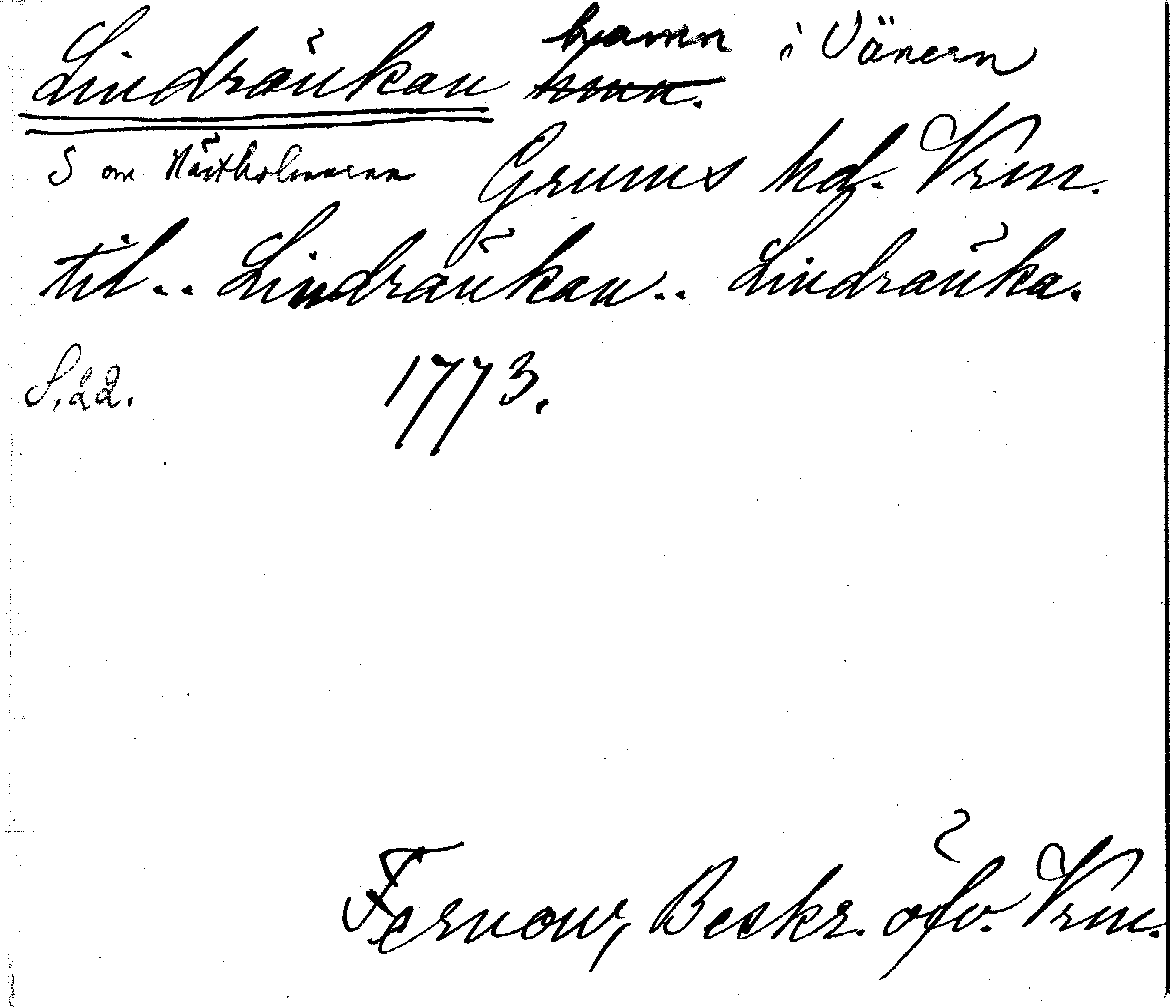 Lindränkan hamn i Vänern
S om Grums hd. Vrm.
til.. Lindränkan.. Lindränka.
S. 22. 1773.
Fernow, Beskr. öfv. Vrm.